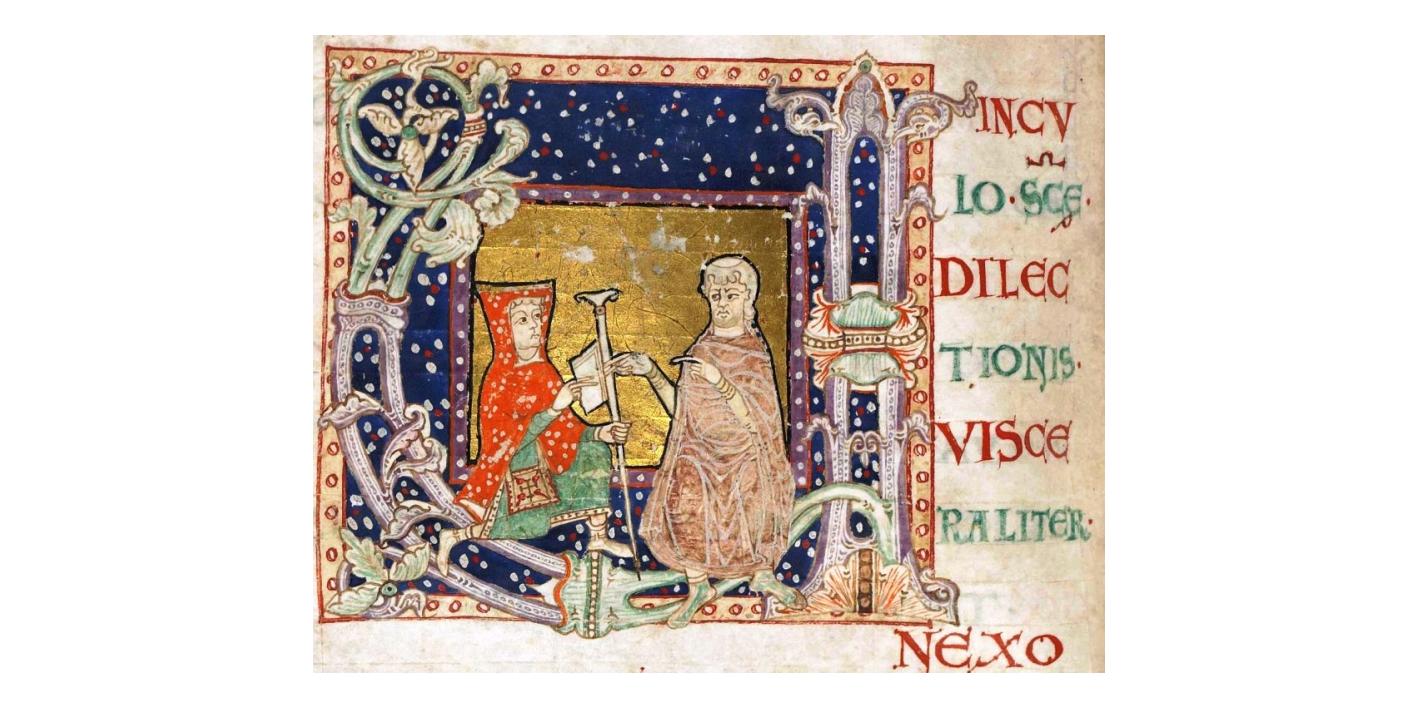 VINCV
LO·SCE·
DILEC
TIONIS·
VISCE
RALITER·
NEXO